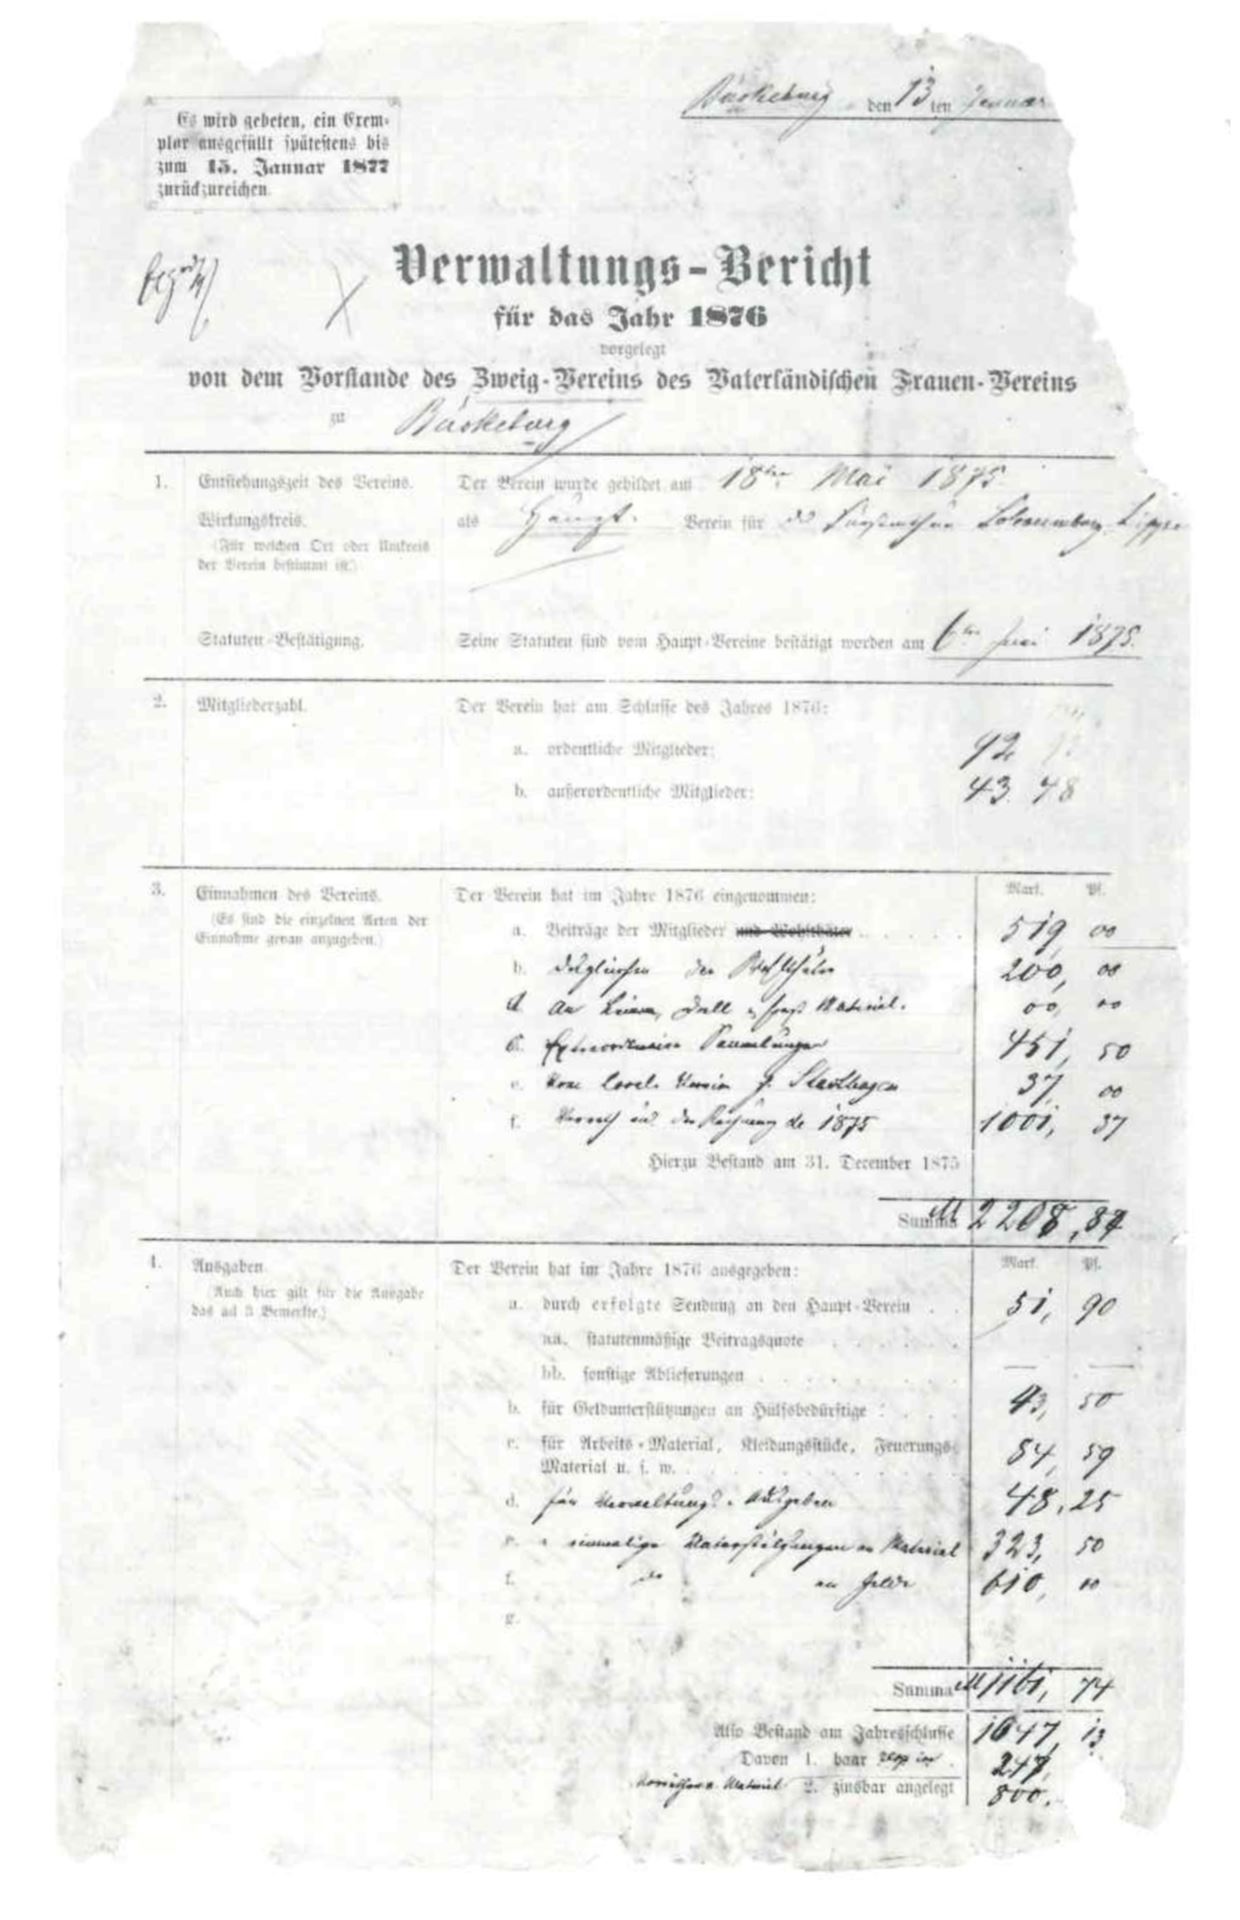 Bückeburg den 13 ten Januar
Es wird gebeten, ein Exem-
plar ausgefüllt spätestens bis
zum 15. Januar 1877
zurückzureichen.
Verwaltungs-Bericht
für das Jahr 1876
vorgelegt
von dem Vorstande des Zweig-Vereins des Vaterländischen Frauen-Vereins
zu Bückeburg
1. Entstehungszeit des Vereins. Der Verein wurde gebildet am 18ten Mai 1875
Wirkungskreis. als Haupt- Verein für das Fürstenthum Schaumburg-Lippe
(Für welchen Ort oder Umkreis
der Verein bestimmt ist.)
Statuten-Bestätigung. Seine Statuten sind vom Haupt-Vereine bestätigt worden am 6ten Juni 1875.
2. Mitgliederzahl. Der Verein hat am Schlusse des Jahres 1876:
a. ordentliche Mitglieder: 92
b. außerordentliche Mitglieder: 43. 48
3. Einnahmen des Vereins. Der Verein hat im Jahre 1876 eingenommen: Mark. Pf.
(Es sind die einzelnen Arten der
Einnahme genau anzugeben.)
a. Beiträge der Mitglieder und Wohlthäter 519 00
b. desgleichen der Wohlthäter 200, 00
d. An Leinen, Drell u. sonst Material. 00, 00
d. Extraordinaire Sammlungen 451, 50
e. Vom Local-Verein z. Stadthagen 37, 00
f. in der Rechnung de 1875 1001, 37
Hierzu Bestand am 31. December 1875
Summa M 2208, 87
4. Ausgaben. Der Verein hat im Jahre 1876 ausgegeben: Mark. Pf.
(Auch hier gilt für die Ausgabe
das ad 3 Bemerkte.)
a. durch erfolgte Sendung an den Haupt-Verein 51, 90
aa. statutenmäßige Beitragsquote
bb. sonstige Ablieferungen
b. für Geldunterstützungen an Hülfsbedürftige 43, 50
c. für Arbeits-Material, Kleidungsstücke, Feuerungs-
Material u. s. w. 84, 59
d. für Verwaltungs-Ausgaben 48, 25
e. " einmalige Unterstützungen an Material 323, 50
f. do an Gelde 610, 00
g.
Summa M 1161, 74
Also Bestand am Jahresschlusse 1047, 13
Davon 1. baar 247,
Material 2. zinsbar angelegt 800.